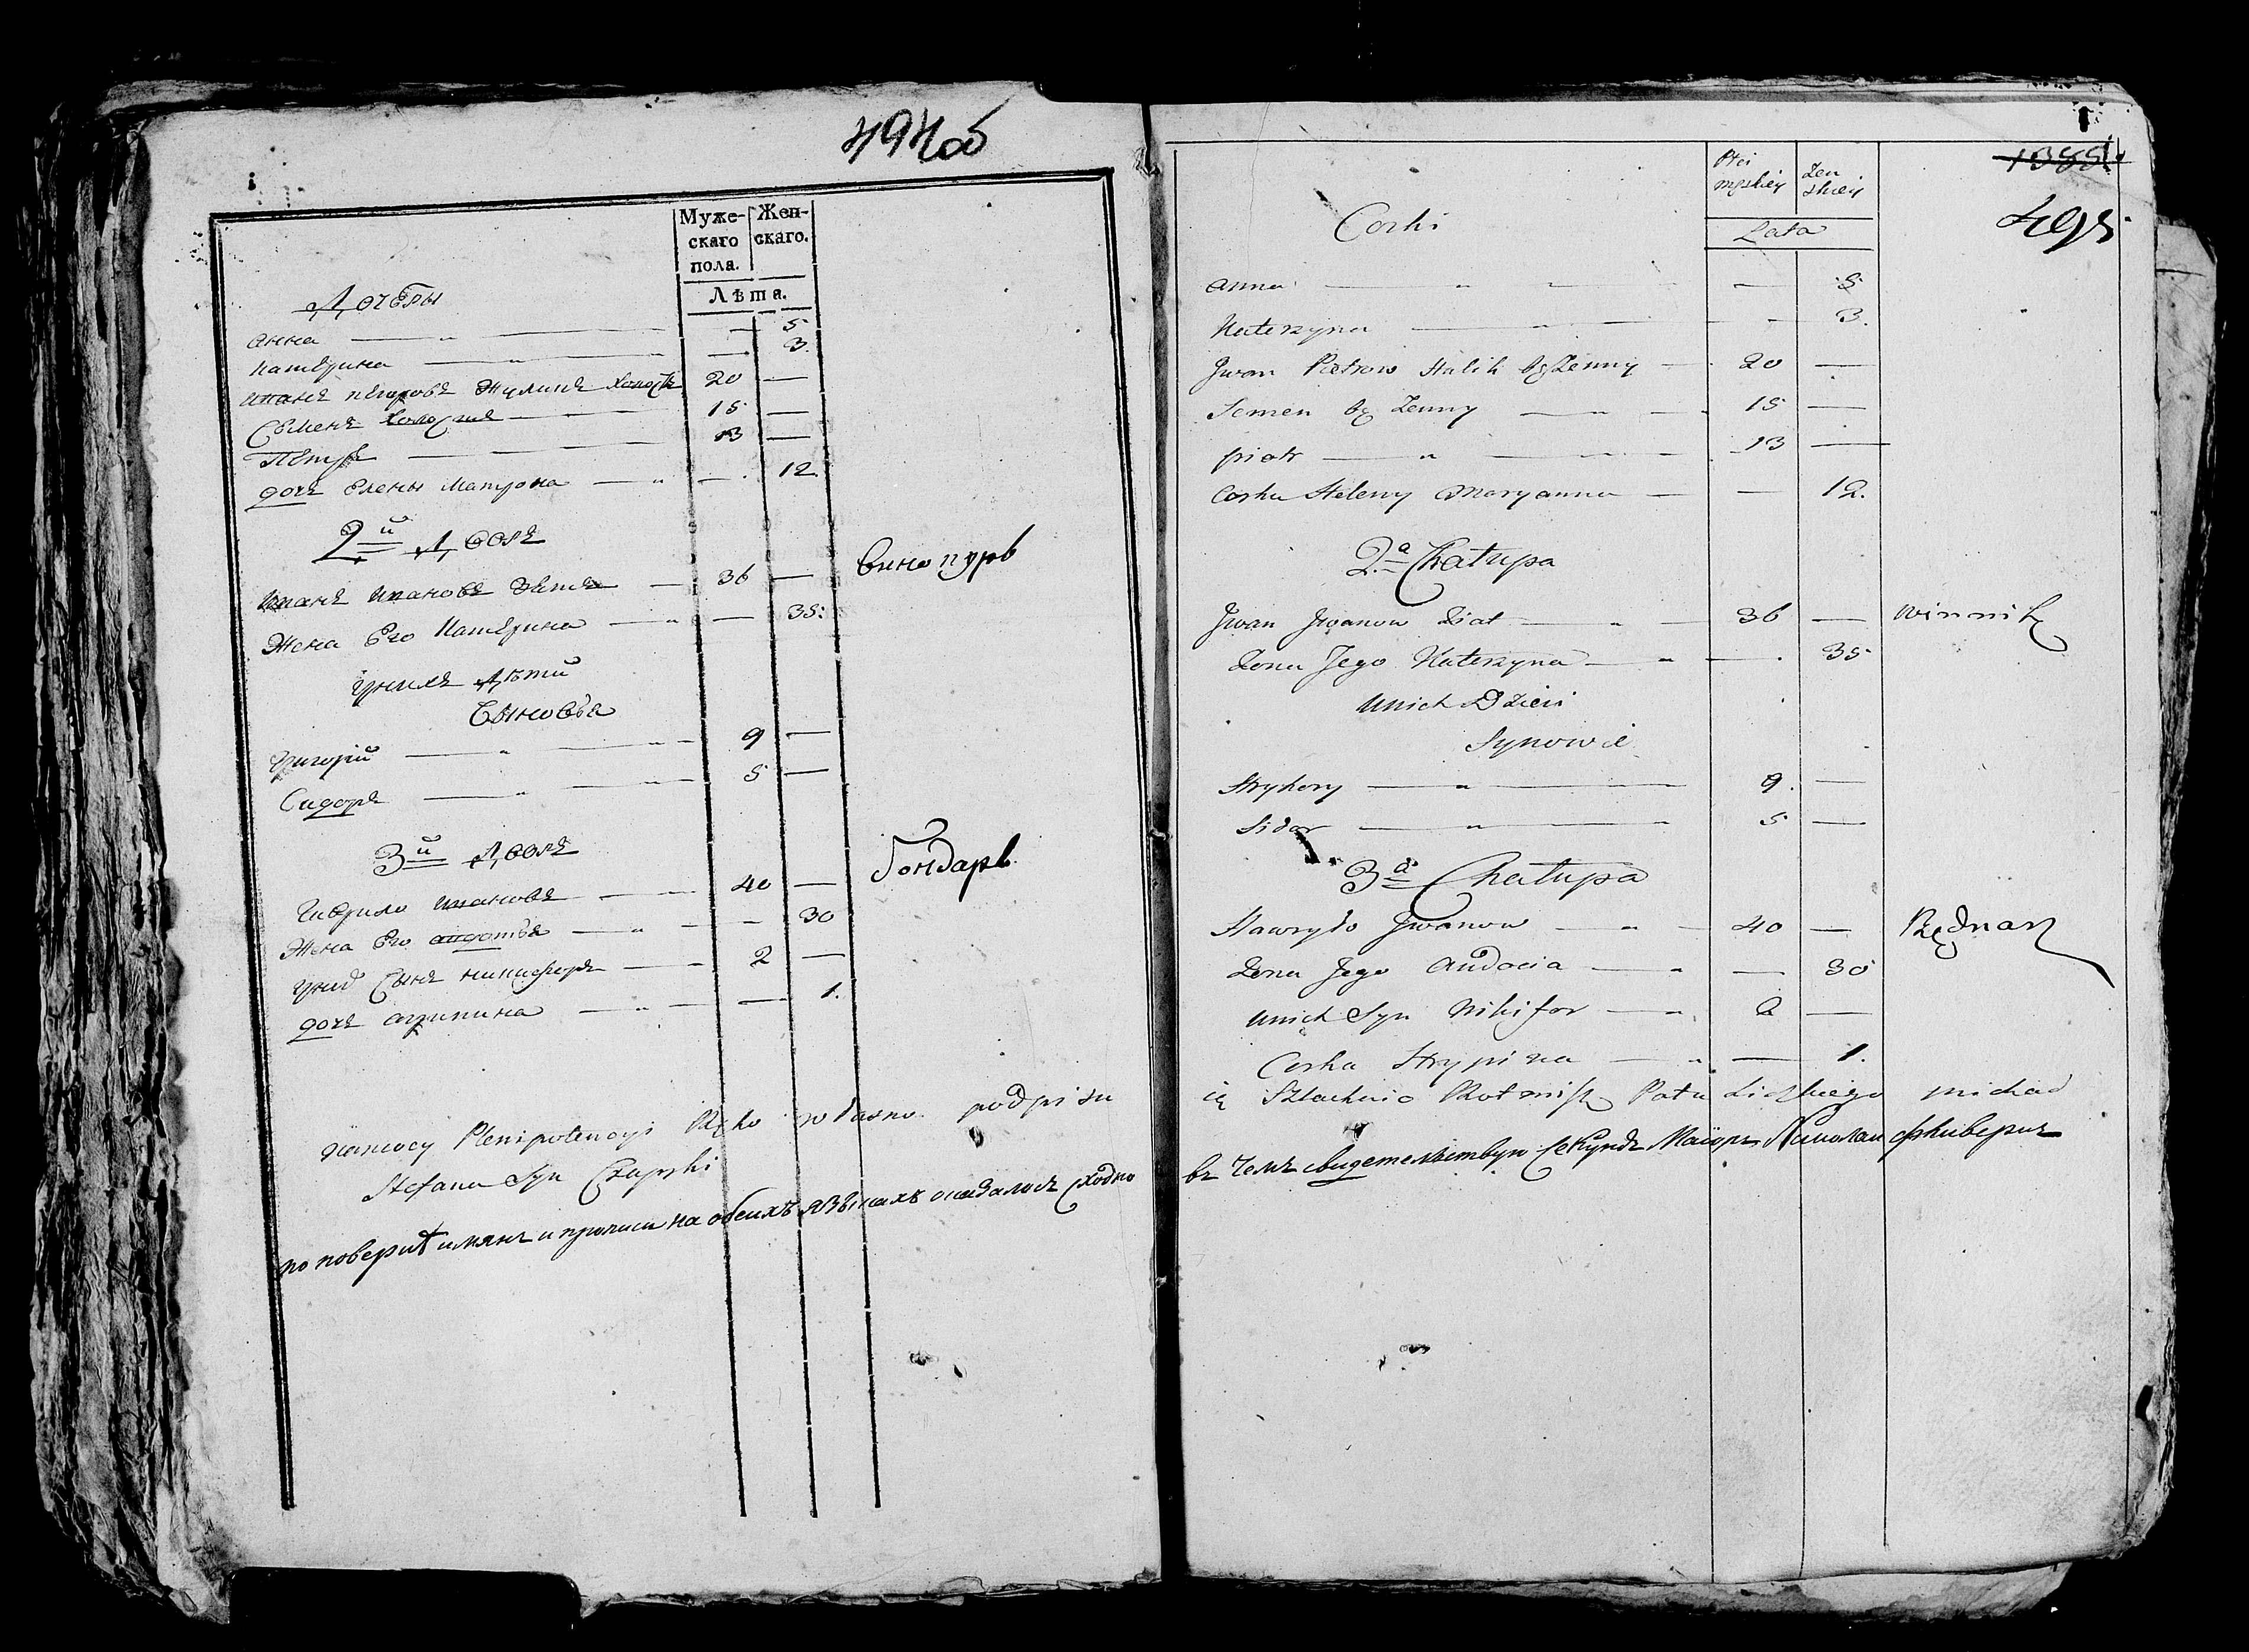 494об
Муже- Жен-
скаго скаго.
пола.
Лѣта.
Дочеры
Анна — 5
Катерина — 3.
Иванъ Петровъ холостъ 20 —
Семенъ холостъ 15 —
Петръ — 13 —
дочь Елены Матрона — 12.
2й Дворъ
Иванъ Ивановъ Зять — 36 — винокуръ
Жена Его Катерина — 35.
у нихъ Дѣти
Сыновья
Григорій — 9 —
Сидоръ — 5 —
3й Дворъ
Гаврило Ивановъ — 40 — бондаръ
Жена Его Авдотья — 30
у нихъ Сынъ Никифоръ — 2 —
дочь Агрипина — 1.
Namocy Plenipotencyi Ręko własno podpisu
Stefana Syn Czapski
по поверке имянъ и прочиси на обеихъ языкахъ оказалось сходно
1385
495
Płci męskiey Żeńskiey
Lata
Corki
Anna — 5
Katerzyna — 3.
Jwan Pietrow Halik bezżenny — 20 —
Semen bezżenny — 15 —
Piotr — 13 —
Corka Heleny Maryanna — 12.
2a Chałupa
Jwan Jwanow Ziat — 36 — Winnik
Żona Jego Katerzyna — 35
U nich Dzieci
Synowie
Hryhory — 9. —
Sidor — 5 —
3a Chałupa
Hawryło Jwanow — 40 — Bednarz
Żona Jego Audocia — 30
U nich Syn Nikifor — 2 —
Corka Hrypina — 1.
ię Szlachcic Rotmistrz Patu Lidzkiego Michał
въ чемъ свидетельствую Секундъ Маіоръ Николай